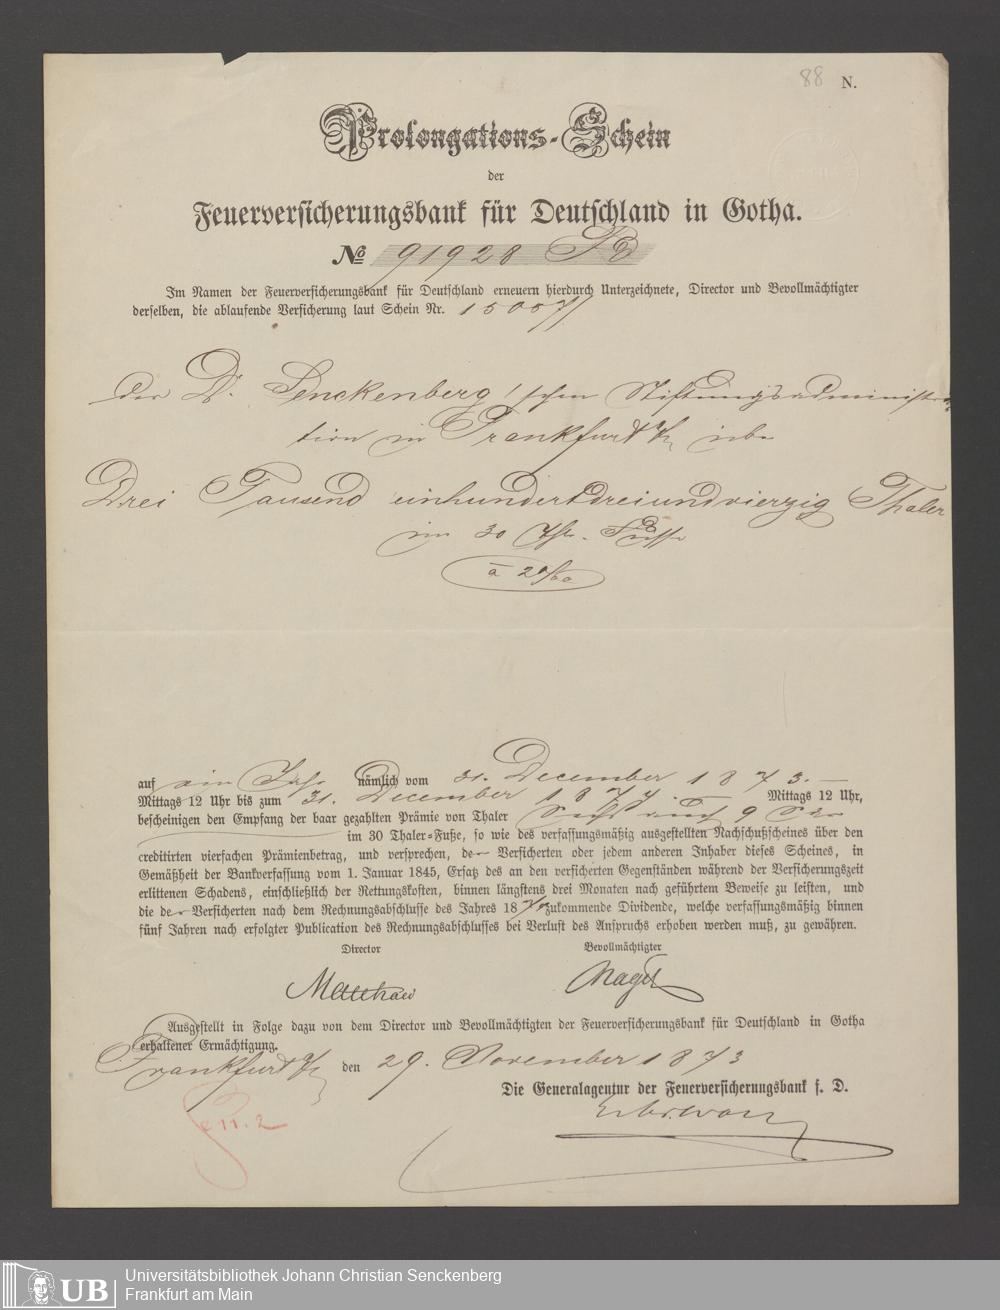 88 N.
Prolongations-Schein
der
Feuerversicherungsbank für Deutschland in Gotha.
No 91928 B
Im Namen der Feuerversicherungsbank für Deutschland erneuern hierdurch Unterzeichnete, Director und Bevollmächtigter
derselben, die ablaufende Versicherung laut Schein Nr.
der Dr. Senckenberg'schen Stiftungsadministra
tion in Frankfurt a/M über
Drei Tausend einhundertdreiundvierzig Thaler
im 30 Thlr. Fusse
a 2
auf ein Jahr nämlich vom 31. December 1873.
Mittags 12 Uhr bis zum 31. December 1874. Mittags 12 Uhr,
bescheinigen den Empfang der baar gezahlten Prämie von Thaler Sechs und 9
im 30 Thaler-Fuße, so wie des verfassungsmäßig ausgestellten Nachschußscheines über den
creditirten vierfachen Prämienbetrag, und versprechen, der Versicherten oder jedem anderen Inhaber dieses Scheines, in
Gemäßheit der Bankverfassung vom 1. Januar 1845, Ersatz des an den versicherten Gegenständen während der Versicherungszeit
erlittenen Schadens, einschließlich der Rettungskosten, binnen längstens drei Monaten nach geführtem Beweise zu leisten, und
die der Versicherten nach dem Rechnungsabschlusse des Jahres 18 zukommende Dividende, welche verfassungsmäßig binnen
fünf Jahren nach erfolgter Publication des Rechnungsabschlusses bei Verlust des Anspruchs erhoben werden muß, zu gewähren.
Director Bevollmächtigter
Nagel
Ausgestellt in Folge dazu von dem Director und Bevollmächtigten der Feuerversicherungsbank für Deutschland in Gotha
erhaltener Ermächtigung.
Frankfurt a/M den 29. November 1873
Die Generalagentur der Feuerversicherungsbank f. D.
UB
Universitätsbibliothek Johann Christian Senckenberg
Frankfurt am Main